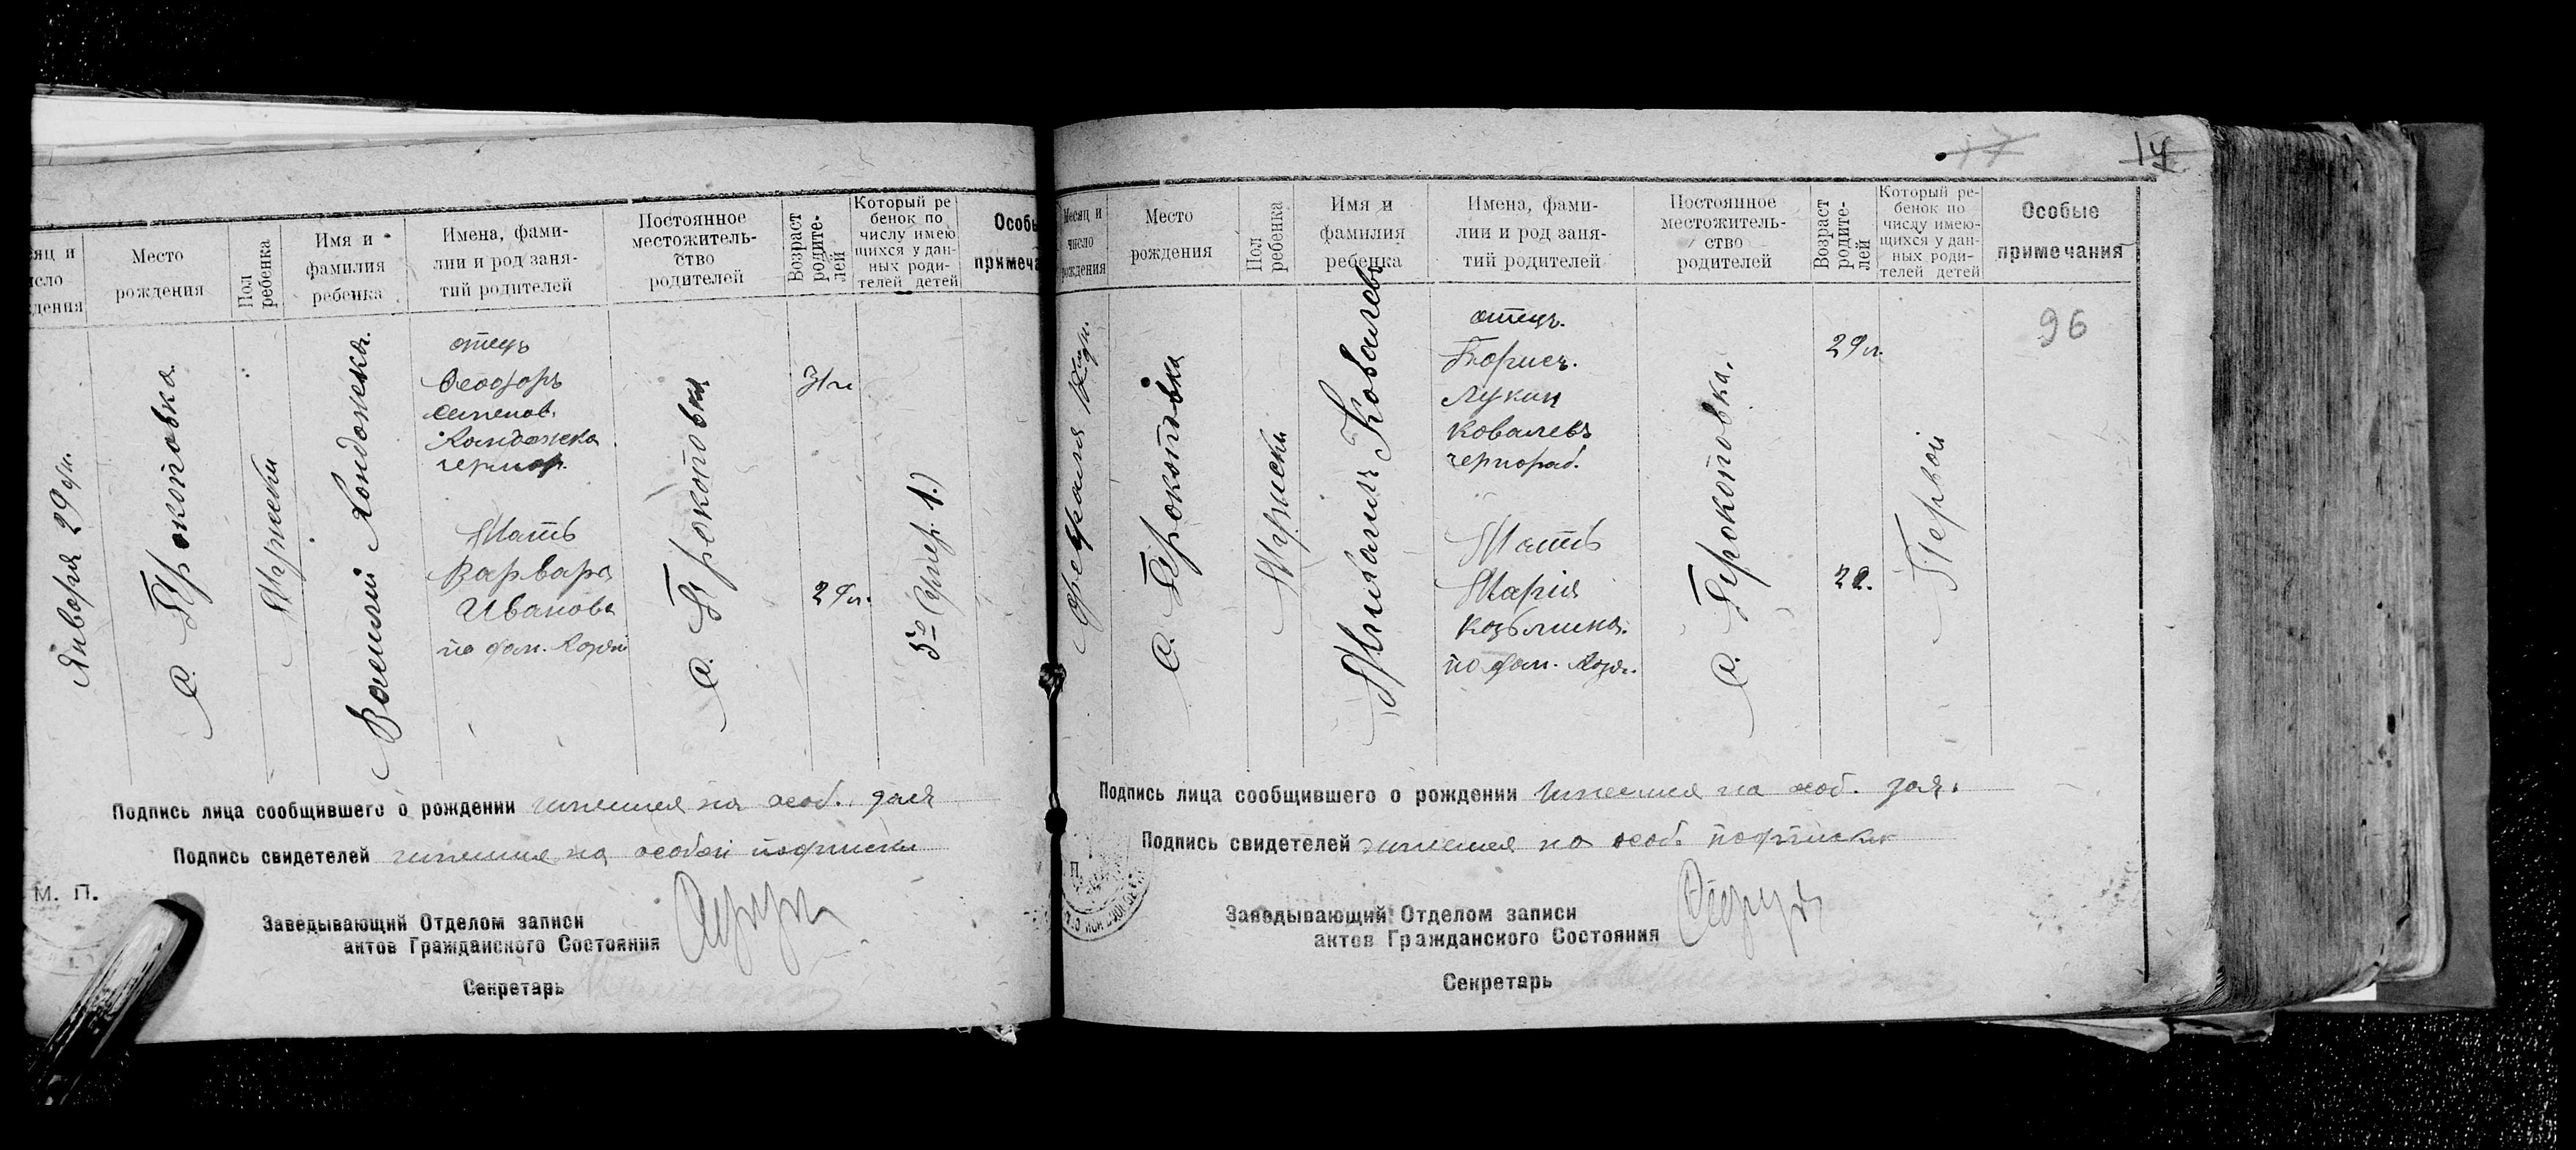 яц и
исло
дения
Место
рождения
Пол
ребенка
Имя и
фамилия
ребенка
Имена, фами-
лии и род заня-
тий родителей
Постоянное
местожитель-
ство
родителей
Возраст
родите-
лей
Который ре
бенок по
числу имею
щихся у дан-
ных роди-
телей детей
Особы
примеча
Января 29 дн.
с. Прокоповка
Мужски
Василий Кондожка.
отец
Феодоръ
Семенов.
Кондожка
чернор.
Мать
Варвара
Иванова
по фам.
с. Прокоповка
31 л
29 л.
5-й
Подпись лица сообщившего о рождении имеется на особ. заяв
Подпись свидетелей имеется на особой подписки
М. П.
Заведывающий Отделом записи
актов Гражданского Состояния
Секретарь
17
14
Месяц и
число
рождения
Место
рождения
Пол
ребенка
Имя и
фамилия
ребенка
Имена, фами-
лии и род заня-
тий родителей
Постоянное
местожитель-
ство
родителей
Возраст
родите-
лей
Который ре-
бенок по
числу имею-
щихся у дан-
ных роди-
телей детей
Особые
примечания
Февраля
с. Прокоповка
Мужски
Михаилъ Ковалевъ
отецъ.
Борисъ.
Лукин
Ковалевъ
чернораб.
Мать
Марія
Козьмина.
по фам.
с. Прокоповка.
29 л.
22.
Первой
96
Подпись лица сообщившего о рождении имеется на особ. заяв.
Подпись свидетелей имеется на особ. подписки
П.
Заведывающий Отделом записи
актов Гражданского Состояния
Секретарь